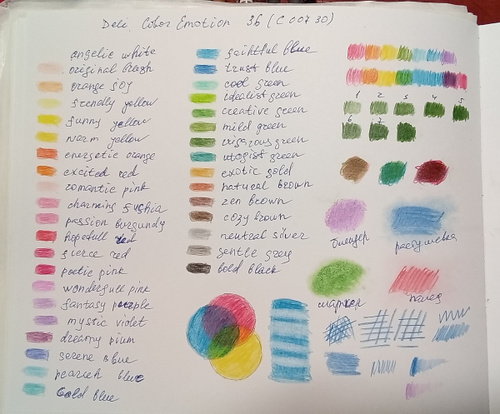 Deli Color Emotion 36 (C 007 30)
angelic white
original blush
orange soy
friendly yellow
funny yellow
warm yellow
energetic orange
excited red
romantic pink
charming fushia
passion burgundy
hopefull red
fierce red
poetic pink
wonderfull pink
fantasy purple
mystic violet
dreamy plum
serene blue
peacock blue
Cold blue
faithful blue
trust blue
cool green
idealist green
creative green
mild green
vigorous green
utopist green
exotic gold
natural brown
zen brown
cozy brown
neutral silver
gentle grey
bold black
1 2 3 4 5
6 7 8
блендер растушевка